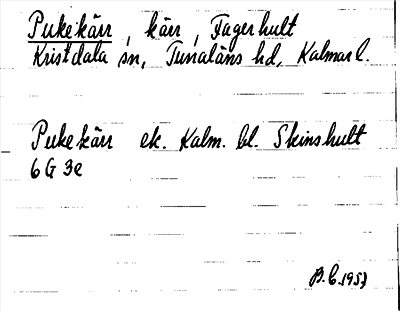 Pukekärr, kärr, Fagerhult
Kristdala sn, Tunaläns hd, Kalmar l.
Pukekärr ek. Kalm. bl. Skinshult
6 G 3e
B.C. 1953